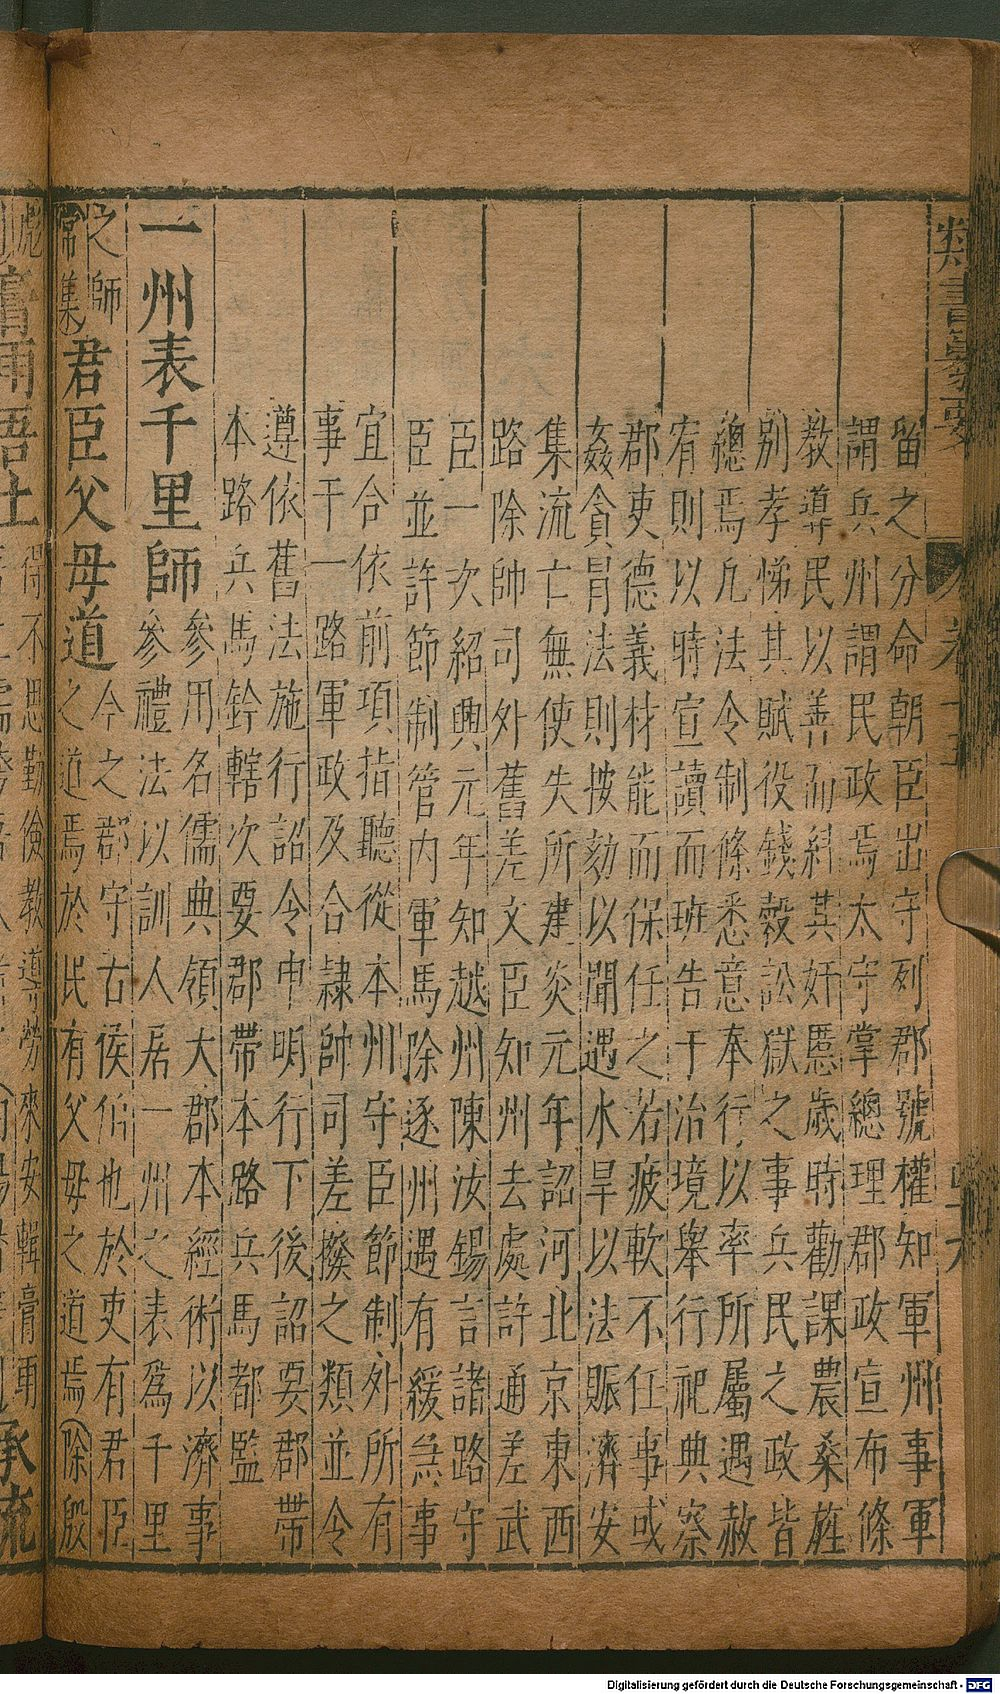 留之分命朝臣出守列郡號權知軍州事軍
謂兵州謂民政焉太守掌總理郡政宣布條
教導民以善而糾其奸慝歲時勸課農桑旌
别孝悌其賦役錢穀訟獄之事兵民之政皆
總焉凡法令制條悉意奉行以率所屬遇赦
宥則以時宣讀而班告于治境舉行祀典察
郡吏德義材能而保任之若疲軟不任事或
姦貪冒法則按劾以聞遇水旱以法賑濟安
集流亡無使失所建炎元年詔河北京東西
路除帥司外舊差文臣知州去處許通差武
臣一次紹興元年知越州陳汝錫言諸路守
臣並許節制管内軍馬除逐州遇有緩急事
宜合依前項指聽從本州守臣節制外所有
事干一路軍政及合隸帥司差撥之類並令
遵依舊法施行詔令申明行下後詔要郡帶
本路兵馬鈐轄次要郡帶本路兵馬都監
一州表千里師
參用名儒典領大郡本經術以濟事
參禮法以訓人居一州之表爲千里
之師
常集
君臣父母道
今之郡守古侯伯也於吏有君臣
之道焉於民有父母之道焉
除殷
得不思勤儉教導勞來安輯膏
類書纂要
卷十五
Digitalisierung gefördert durch die Deutsche Forschungsgemeinschaft - DFG